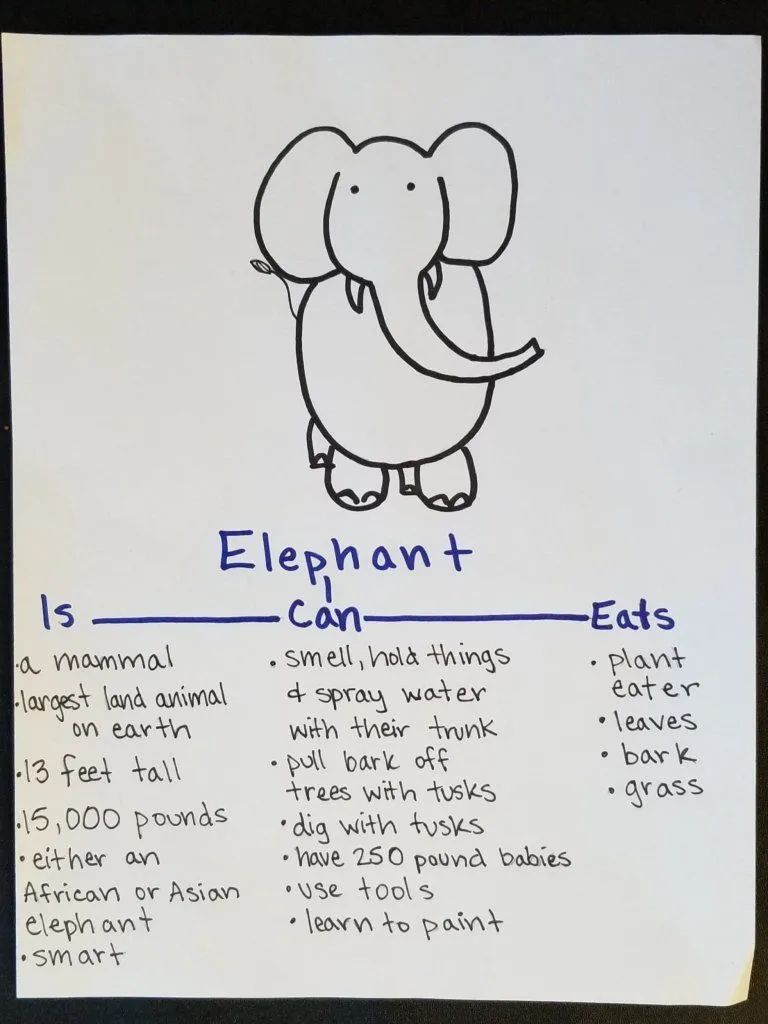 Elephant
Is Can Eats
•a mammal
•largest land animal
on earth
•13 feet tall
•15,000 pounds
•either an
African or Asian
elephant
•smart
•smell, hold things
& spray water
with their trunk
•pull bark off
trees with tusks
•dig with tusks
•have 250 pound babies
•use tools
•learn to paint
•plant
eater
•leaves
•bark
•grass